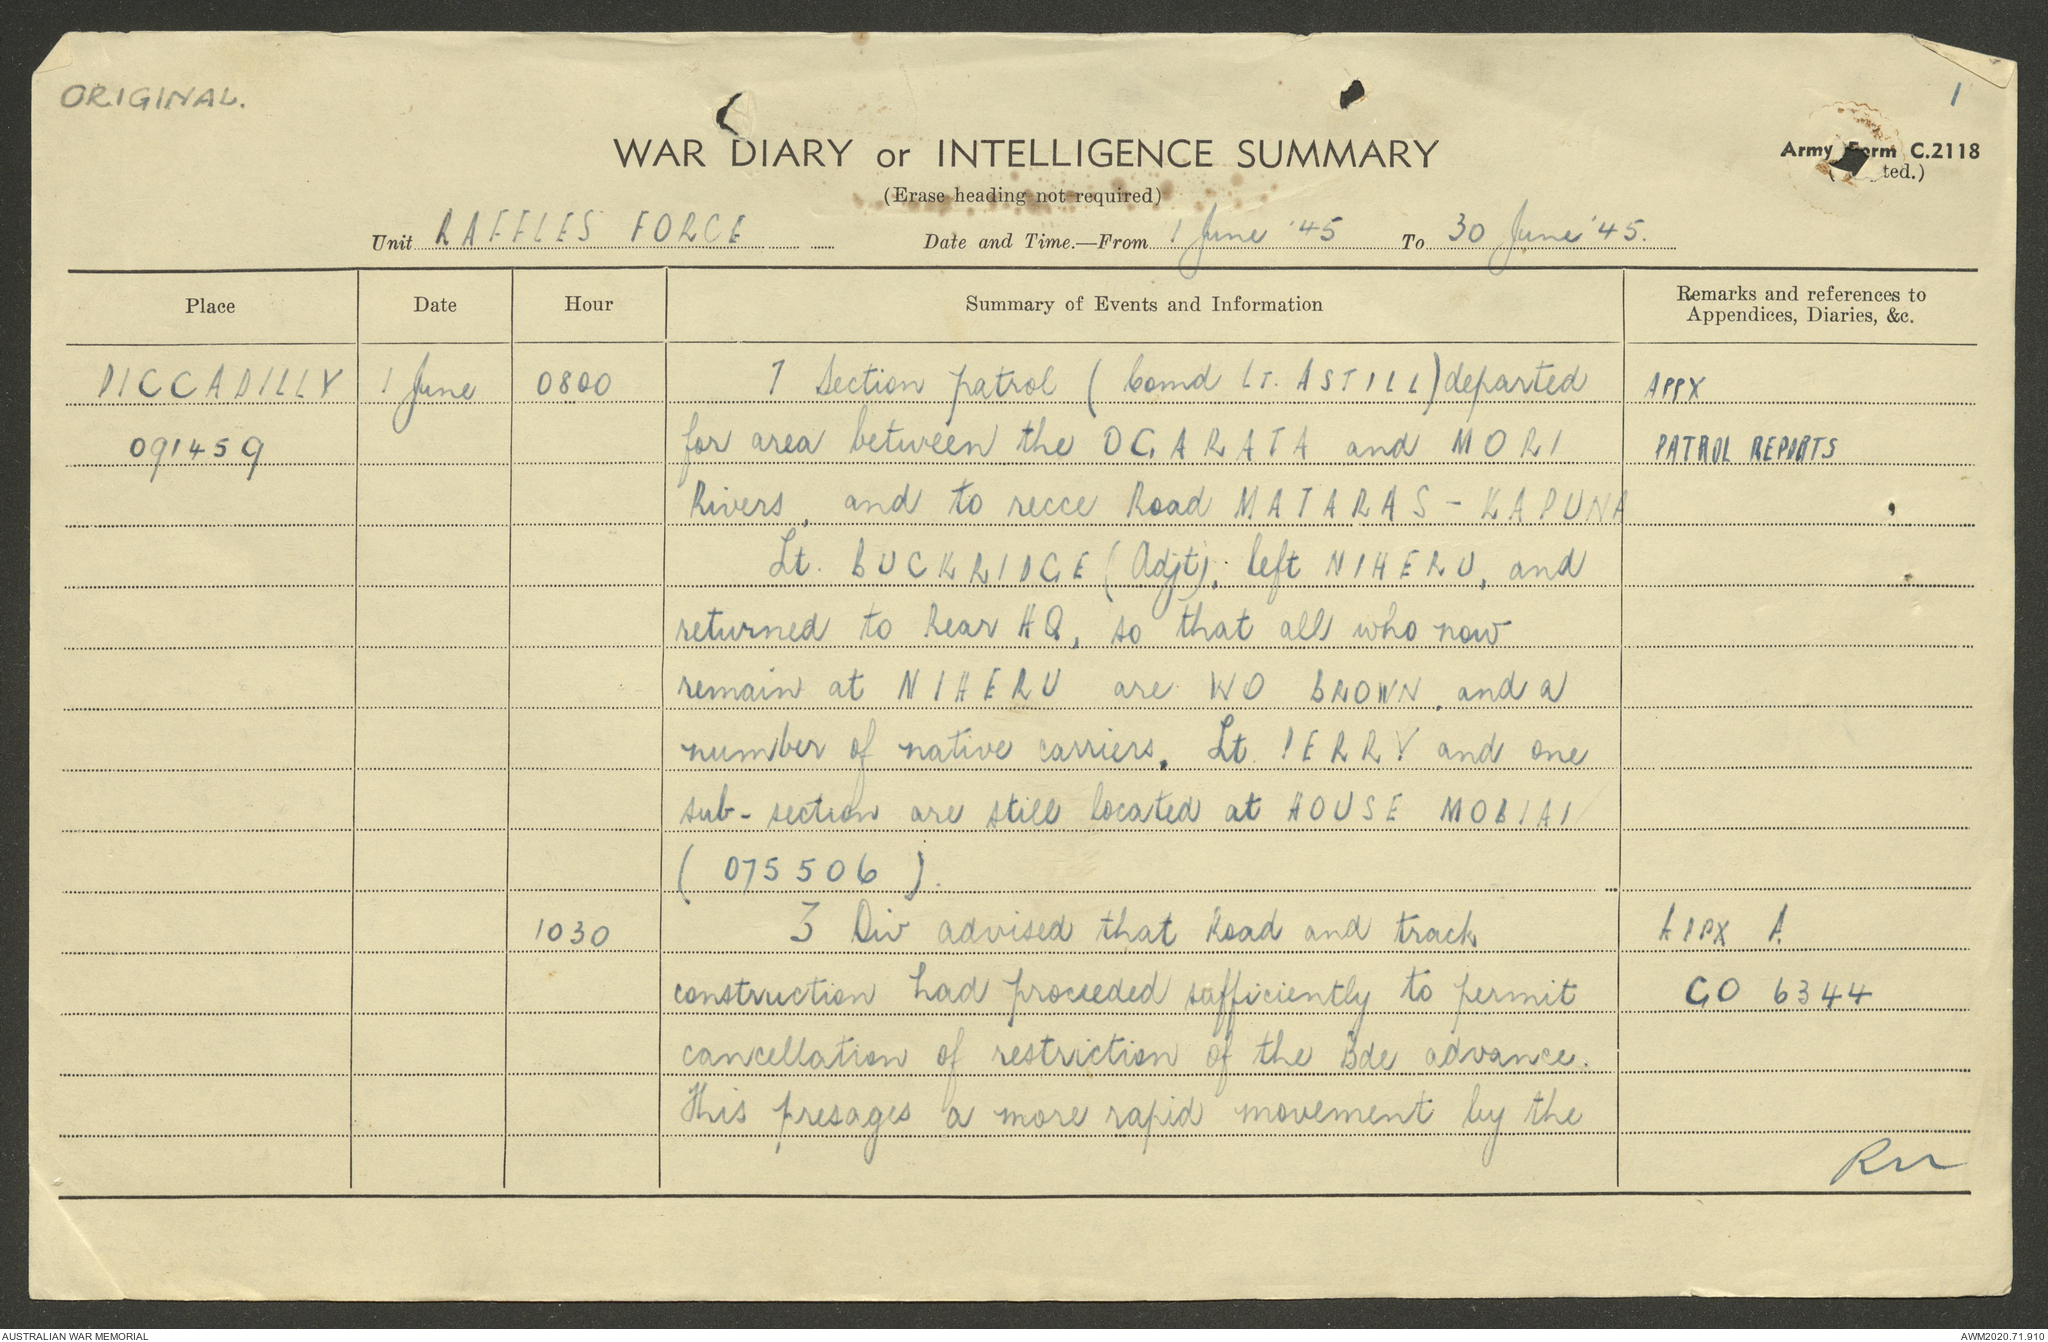 ORIGINAL.
1
WAR DIARY or INTELLIGENCE SUMMARY
Army Form C.2118
(Erase heading not required)
ted.)
Unit RAFFLES FORCE Date and Time.—From 1 June '45 To 30 June '45.
Place Date Hour Summary of Events and Information Remarks and references to Appendices, Diaries, &c.
PICCADILLY 1 June 0800 7 Section patrol (Comd LT. ASTILL) departed APPX
091459 for area between the OGARATA and MORI PATROL REPORTS
Rivers, and to recce Road MATARAS - KAPUNA
Lt. BUCKRIDGE (Adjt), left NIHERU, and
returned to Rear HQ, so that all who now
remain at NIHERU are WO BROWN, and a
number of native carriers. Lt. PERRY and one
sub-section are still located at HOUSE MOBIAI
(075506).
1030 3 Div advised that Road and track APPX A
construction had proceeded sufficiently to permit GO 6344
cancellation of restriction of the Bde advance.
This presages a more rapid movement by the
AUSTRALIAN WAR MEMORIAL
AWM2020.71.910